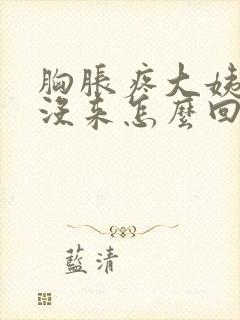 胸脹疼大姨
沒来怎麼回
藍清